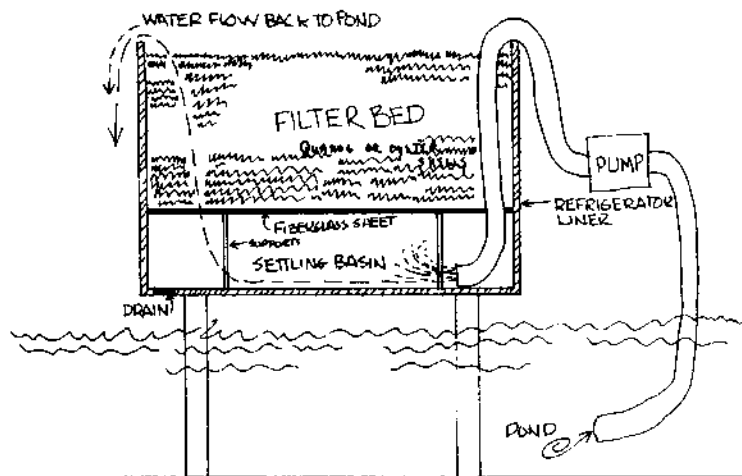 WATER FLOW BACK TO POND
FILTER BED
OR OYSTER
SHELLS
PUMP
REFRIGERATOR
LINER
FIBERGLASS SHEET
SUPPORTS
SETTLING BASIN
DRAIN
POND